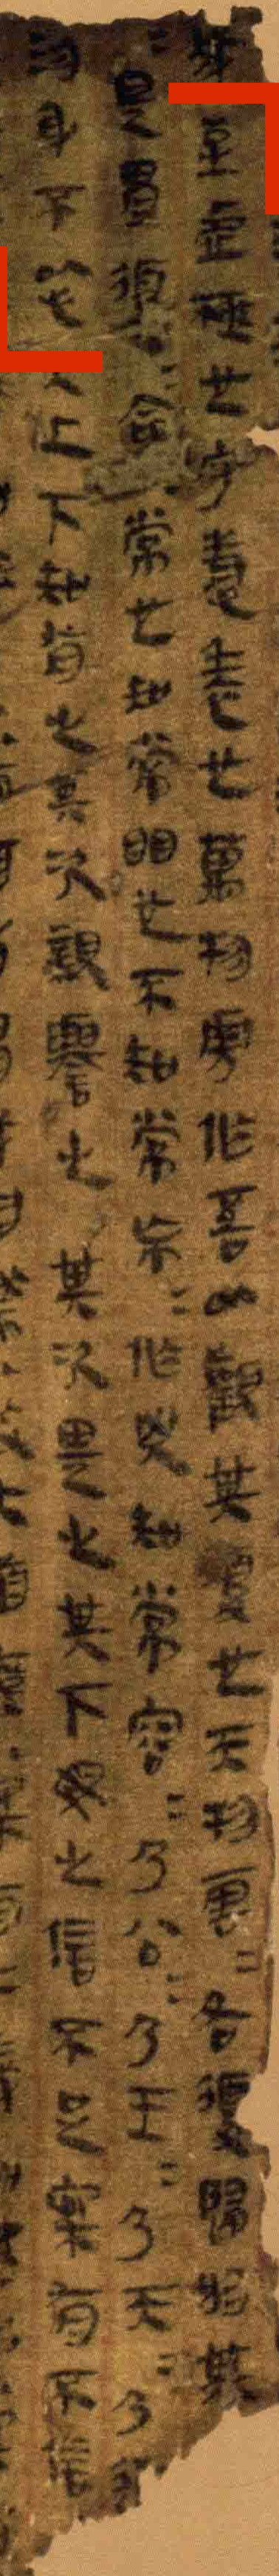 至虛極也守情表也萬物旁作吾以觀其復也天物雲=各復歸於其
=是胃復=命=常也知常明也不知常㠵=作兇知常容=乃公=乃王=乃天=乃道
沕身不怠大上下知有之其次親譽之其次畏之其下母之信不足案有不信